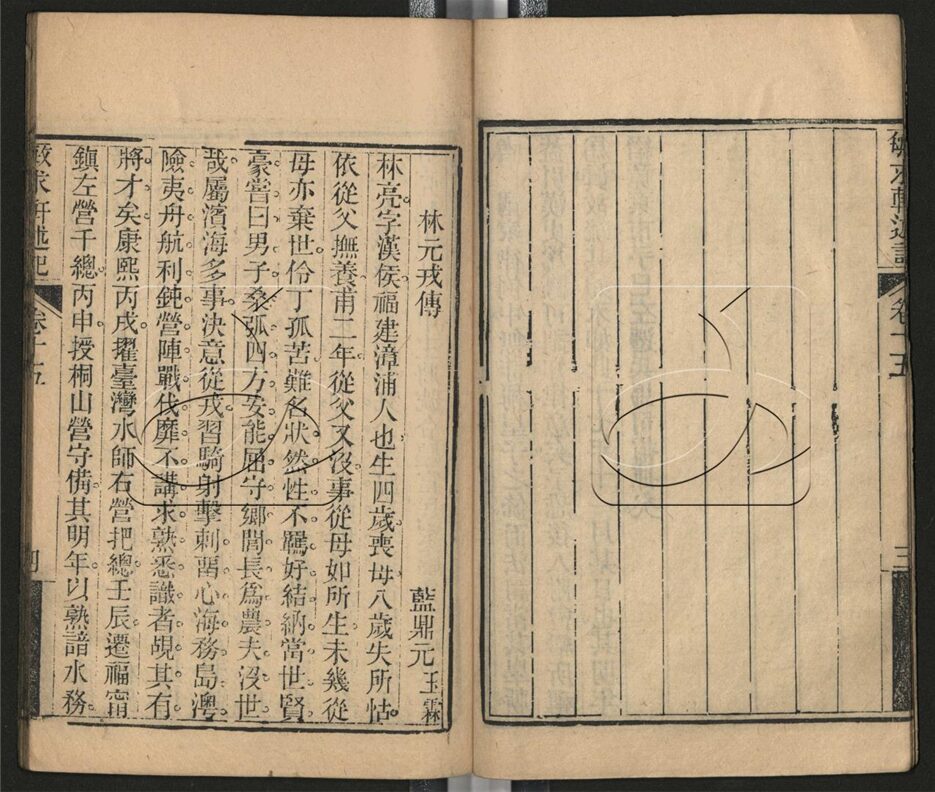 敏求軒述記
卷十五
三
林元戎傳
藍鼎元玉霖
林亮字漢侯福建漳浦人也生四歲喪母八歲失所怙
依從父撫養甫二年從父又沒事從母如所生未幾從
母亦棄世伶丁孤苦難名狀然性不羈好結納當世賢
豪嘗曰男子桑弧四方安能困守鄉閭長為農夫沒世
哉屬濱海多事決意從戎習騎射擊刺畱心海務島澳
險夷舟航利鈍營陣戰伐靡不講求熟悉識者覘其有
將才矣康熙丙戌擢臺灣水師右營把總壬辰遷福甯
鎮左營千總丙申授桐山營守備其明年以熟諳水務
敏求軒述記
卷十五
四